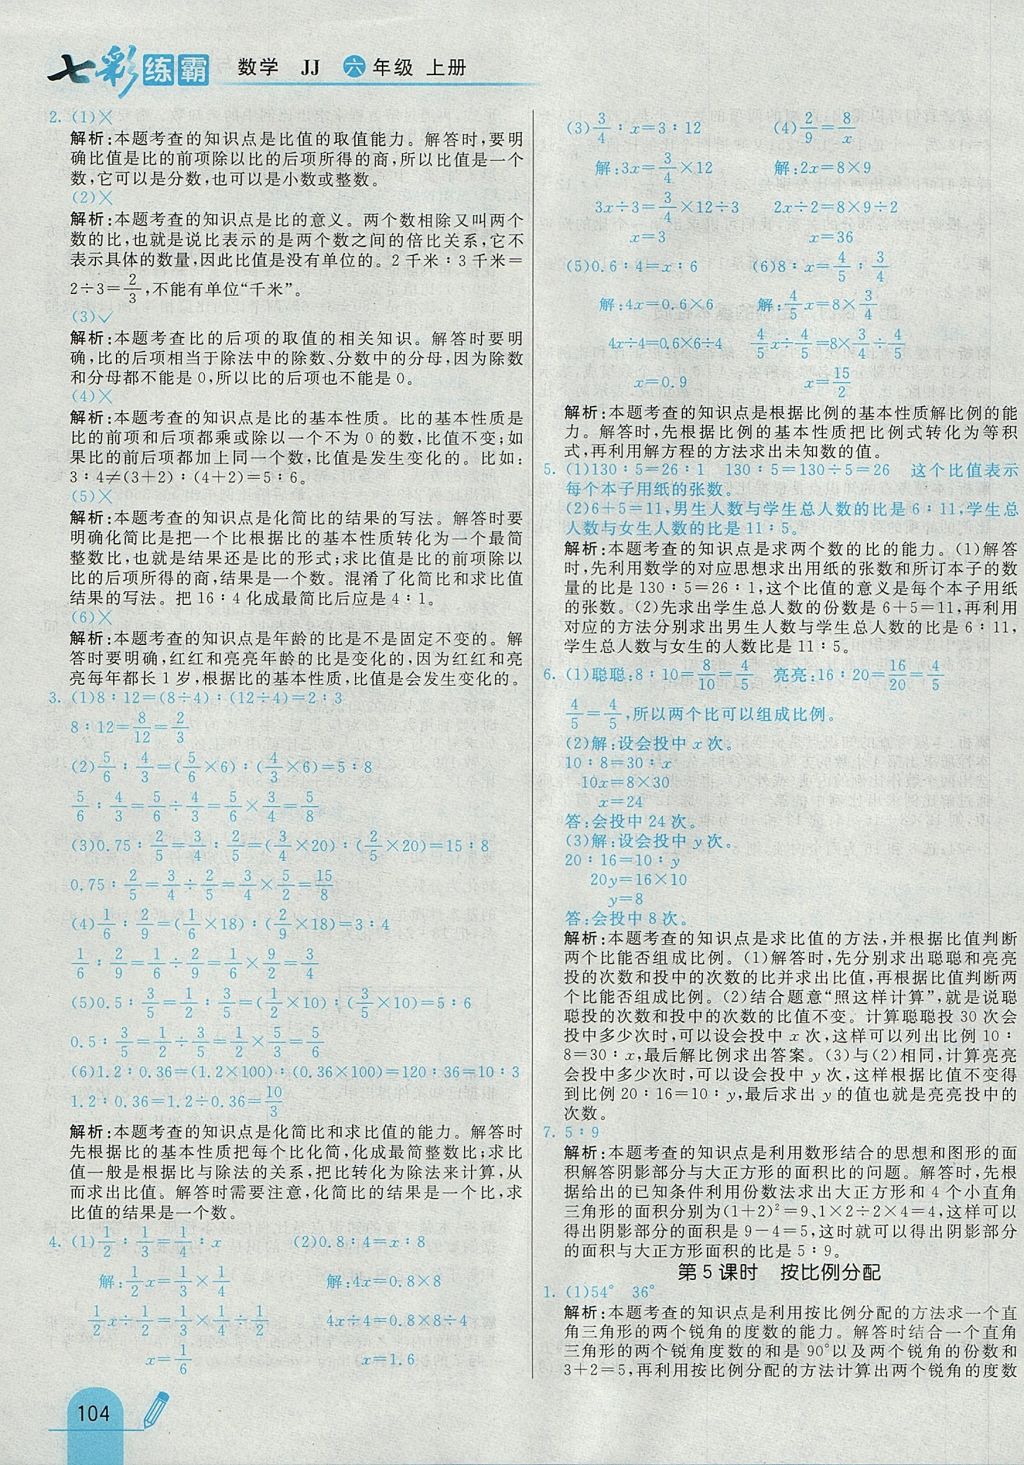 七彩练霸 数学 JJ 六年级 上册
2. (1)×
解析:本题考查的知识点是比值的取值能力。解答时,要明
确比值是比的前项除以比的后项所得的商,所以比值是一个
数,它可以是分数,也可以是小数或整数。
(2)×
解析:本题考查的知识点是比的意义。两个数相除又叫两个
数的比,也就是说比表示的是两个数之间的倍比关系,它不
表示具体的数量,因此比值是没有单位的。2千米∶3千米=
2÷3=2/3,不能有单位“千米”。
(3)✓
解析:本题考查比的后项的取值的相关知识。解答时要明
确,比的后项相当于除法中的除数、分数中的分母,因为除数
和分母都不能是0,所以比的后项也不能是0。
(4)×
解析:本题考查的知识点是比的基本性质。比的基本性质是
比的前项和后项都乘或除以一个不为0的数,比值不变;如
果比的前后项都加上同一个数,比值是发生变化的。比如:
3∶4≠(3+2)∶(4+2)=5∶6。
(5)×
解析:本题考查的知识点是化简比的结果的写法。解答时要
明确化简比是把一个比根据比的基本性质转化为一个最简
整数比,也就是结果还是比的形式;求比值是比的前项除以
比的后项所得的商,结果是一个数。混淆了化简比和求比值
结果的写法。把16∶4化成最简比后应是4∶1。
(6)×
解析:本题考查的知识点是年龄的比是不是固定不变的。解
答时要明确,红红和亮亮年龄的比是变化的,因为红红和亮
亮每年都长1岁,根据比的基本性质,比值是会发生变化的。
3. (1)8∶12=(8÷4)∶(12÷4)=2∶3
8∶12=8/12=2/3
(2)5/6∶4/3=(5/6×6)∶(4/3×6)=5∶8
5/6∶4/3=5/6÷4/3=5/6×3/4=5/8
(3)0.75∶2/5=3/4∶2/5=(3/4×20)∶(2/5×20)=15∶8
0.75∶2/5=3/4÷2/5=3/4×5/2=15/8
(4)1/6∶2/9=(1/6×18)∶(2/9×18)=3∶4
1/6∶2/9=1/6÷2/9=1/6×9/2=3/4
(5)0.5∶3/5=1/2∶3/5=(1/2×10)∶(3/5×10)=5∶6
0.5∶3/5=1/2÷3/5=1/2×5/3=5/6
(6)1.2∶0.36=(1.2×100)∶(0.36×100)=120∶36=10∶3
1.2∶0.36=1.2÷0.36=10/3
解析:本题考查的知识点是化简比和求比值的能力。解答时
先根据比的基本性质把每个比化简,化成最简整数比;求比
值一般是根据比与除法的关系,把比转化为除法来计算,从
而求出比值。解答时需要注意,化简比的结果是一个比,求
比值的结果是一个数。
4. (1)1/2∶1/3=1/4∶x (2)0.8∶4=x∶8
解:1/2x=1/3×1/4 解:4x=0.8×8
1/2x÷1/2=1/3×1/4÷1/2 4x÷4=0.8×8÷4
x=1/6 x=1.6
104
(3)3/4∶x=3∶12 (4)2/9=8/x
解:3x=3/4×12 解:2x=8×9
3x÷3=3/4×12÷3 2x÷2=8×9÷2
x=3 x=36
(5)0.6∶4=x∶6 (6)8∶x=4/5∶3/4
解:4x=0.6×6 解:4/5x=8×3/4
4x÷4=0.6×6÷4 4/5x÷4/5=8×3/4÷4/5
x=0.9 x=15/2
解析:本题考查的知识点是根据比例的基本性质解比例的能
力。解答时,先根据比例的基本性质把比例式转化为等积
式,再利用解方程的方法求出未知数的值。
5. (1)130∶5=26∶1 130∶5=130÷5=26 这个比值表示
每个本子用纸的张数。
(2)6+5=11,男生人数与学生总人数的比是6∶11,学生总
人数与女生人数的比是11∶5。
解析:本题考查的知识点是求两个数的比的能力。(1)解答
时,先利用数学的对应思想求出用纸的张数和所订本子的数
量的比是130∶5=26∶1,这个比值的意义是每个本子用纸
的张数。(2)先求出学生总人数的份数是6+5=11,再利用
对应的方法分别求出男生人数与学生总人数的比是6∶11,
学生总人数与女生的人数比是11∶5。
6. (1)聪聪:8∶10=8/10=4/5 亮亮:16∶20=16/20=4/5
4/5=4/5,所以两个比可以组成比例。
(2)解:设会投中x次。
10∶8=30∶x
10x=8×30
x=24
答:会投中24次。
(3)解:设会投中y次。
20∶16=10∶y
20y=16×10
y=8
答:会投中8次。
解析:本题考查的知识点是求比值的方法,并根据比值判断
两个比能否组成比例。(1)解答时,先分别求出聪聪和亮亮
投的次数和投中的次数的比并求出比值,再根据比值判断两
个比能否组成比例。(2)结合题意“照这样计算”,就是说聪
聪投的次数和投中的次数的比值不变。计算聪聪投30次会
投中多少次时,可以设会投中x次,这样可以列出比例10∶
8=30∶x,最后解比例求出答案。(3)与(2)相同,计算亮亮
会投中多少次时,可以设会投中y次,这样根据比值不变得
到比例20∶16=10∶y,最后求出y的值也就是亮亮投中的
次数。
7. 5∶9
解析:本题考查的知识点是利用数形结合的思想和图形的面
积解答阴影部分与大正方形的面积比的问题。解答时,先根
据给出的已知条件利用份数法求出大正方形和4个小直角
三角形的面积分别为(1+2)²=9,1×2÷2×4=4,这样可以
得出阴影部分的面积是9-4=5,这时就可以得出阴影部分
的面积与大正方形面积的比是5∶9。
第5课时 按比例分配
1. (1)54° 36°
解析:本题考查的知识点是利用按比例分配的方法求一个直
角三角形的两个锐角的度数的能力。解答时结合一个直角
三角形的两个锐角度数的和是90°以及两个锐角的份数和
3+2=5,再利用按比例分配的方法计算出两个锐角的度数